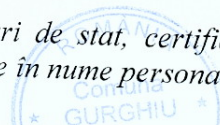 ri de stat, certifi
e în nume persona
ROMÂNIA
Comuna
GURGHIU